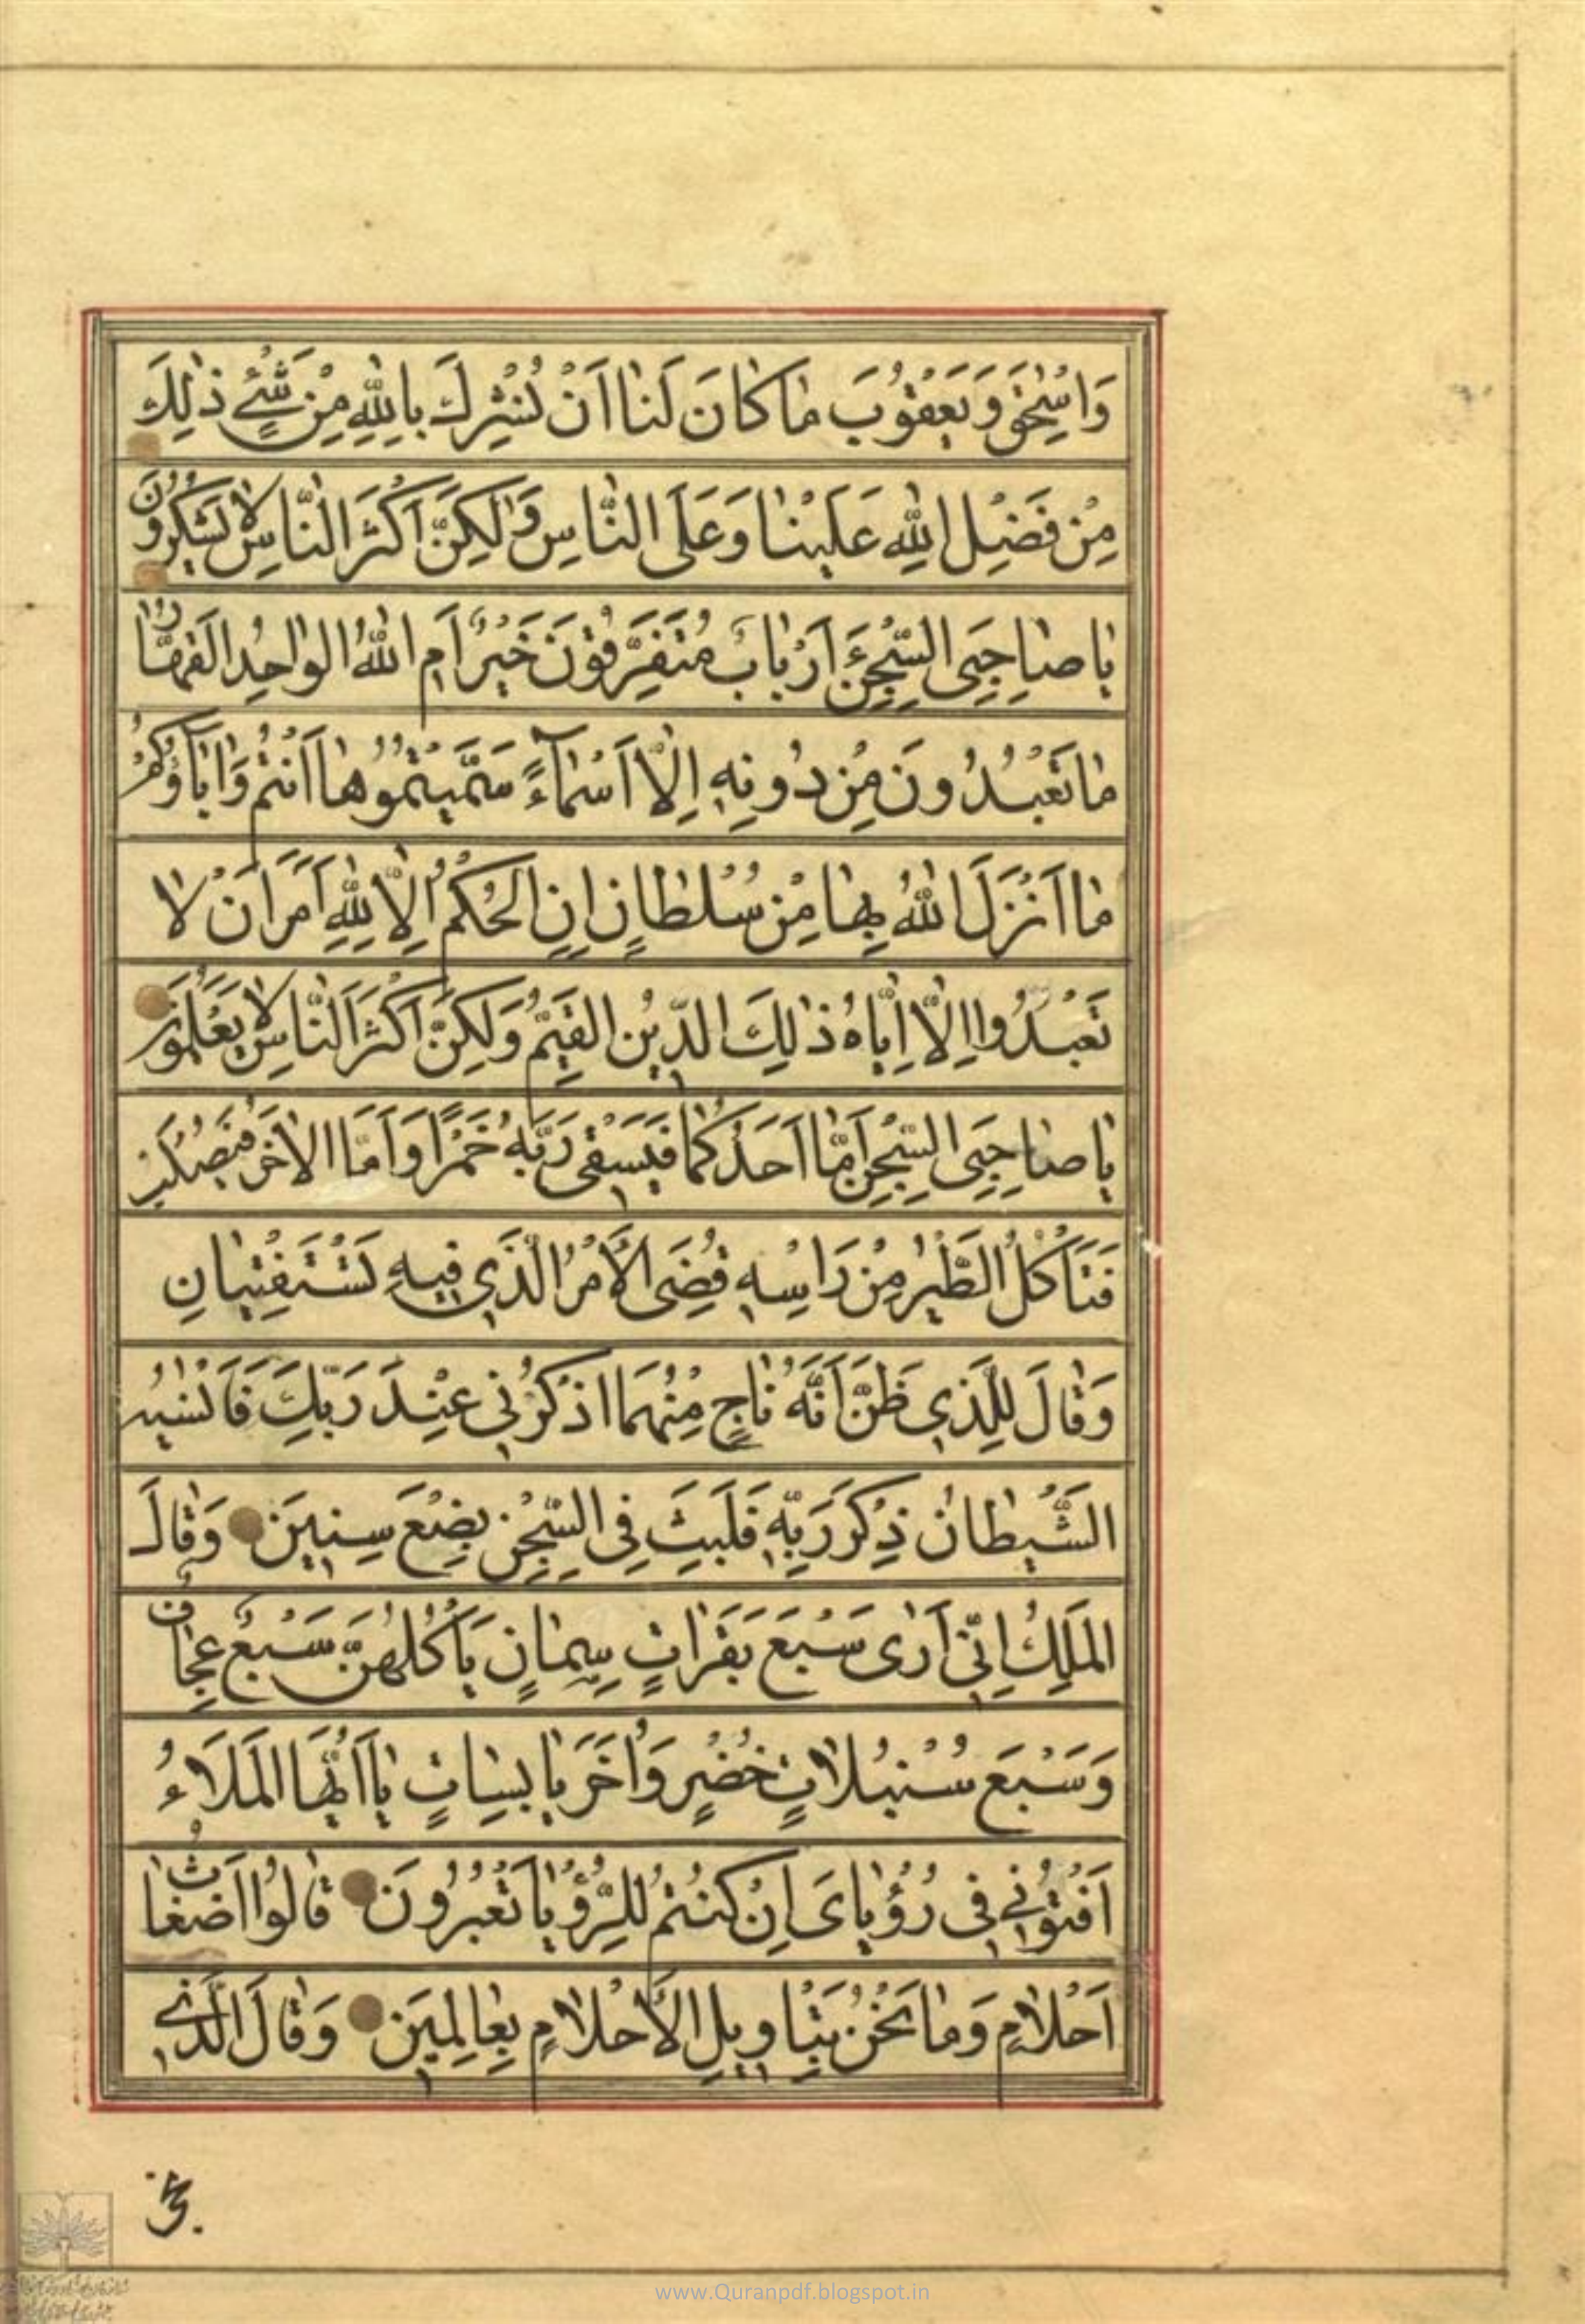 وَاِسْحٰقَ وَيَعْقُوبَ مٰا كٰانَ لَنٰا اَنْ نُشْرِكَ بِاللّٰهِ مِنْ شَيْءٍ ذٰلِكَ
مِنْ فَضْلِ اللّٰهِ عَلَيْنٰا وَعَلَى النّٰاسِ وَلٰكِنَّ اَكْثَرَ النّٰاسِ لٰا يَشْكُرُونَ
يٰا صٰاحِبَيِ السِّجْنِ ءَاَرْبٰابٌ مُتَفَرِّقُونَ خَيْرٌ اَمِ اللّٰهُ الْوٰاحِدُ الْقَهّٰارُ
مٰا تَعْبُدُونَ مِنْ دُونِهِ اِلّٰا اَسْمٰآءً سَمَّيْتُمُوهٰا اَنْتُمْ وَاٰبٰآؤُكُمْ
مٰا اَنْزَلَ اللّٰهُ بِهٰا مِنْ سُلْطٰانٍ اِنِ الْحُكْمُ اِلّٰا لِلّٰهِ اَمَرَ اَنْ لٰا
تَعْبُدُوا اِلّٰا اِيّٰاهُ ذٰلِكَ الدّينُ الْقَيِّمُ وَلٰكِنَّ اَكْثَرَ النّٰاسِ لٰا يَعْلَمُونَ
يٰا صٰاحِبَيِ السِّجْنِ اَمّٰا اَحَدُكُمٰا فَيَسْقى رَبَّهُ خَمْرًا وَاَمَّا الْاٰخَرُ فَيُصْلَبُ
فَتَأْكُلُ الطَّيْرُ مِنْ رَاْسِهِ قُضِيَ الْأَمْرُ الَّذي فيهِ تَسْتَفْتِيٰانِ
وَقٰالَ لِلَّذي ظَنَّ اَنَّهُ نٰاجٍ مِنْهُمَا اذْكُرْني عِنْدَ رَبِّكَ فَاَنْسٰيهُ
الشَّيْطٰانُ ذِكْرَ رَبِّهِ فَلَبِثَ فِي السِّجْنِ بِضْعَ سِنينَ وَقٰالَ
الْمَلِكُ اِنّي اَرٰى سَبْعَ بَقَرٰاتٍ سِمٰانٍ يَأْكُلُهُنَّ سَبْعٌ عِجٰافٌ
وَسَبْعَ سُنْبُلٰاتٍ خُضْرٍ وَاُخَرَ يٰابِسٰاتٍ يٰا اَيُّهَا الْمَلَاءُ
اَفْتُوني في رُؤْيٰايَ اِنْ كُنْتُمْ لِلرُّؤْيٰا تَعْبُرُونَ قٰالُوا اَضْغٰاثُ
اَحْلٰامٍ وَمٰا نَحْنُ بِتَاْويلِ الْأَحْلٰامِ بِعٰالِمينَ وَقٰالَ الَّذي
www.Quranpdf.blogspot.in